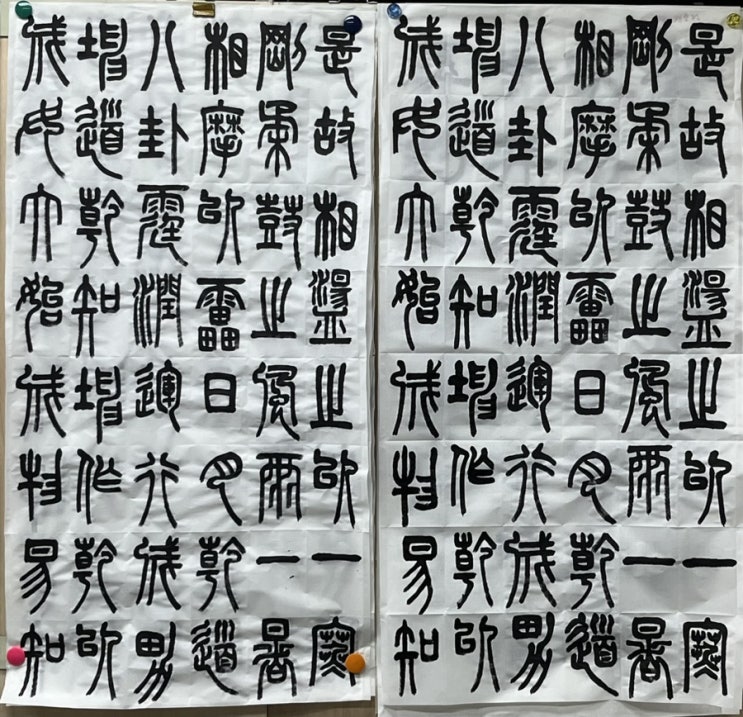 是故相盪之以一寒
剛柔鼓之風雨一暑
相摩以雷日月乾道
八卦霆潤運行成男
坤道乾知坤作乾以
成女大始成物易知
是故相盪之以一寒
剛柔鼓之風雨一暑
相摩以雷日月乾道
八卦霆潤運行成男
坤道乾知坤作乾以
成女大始成物易知